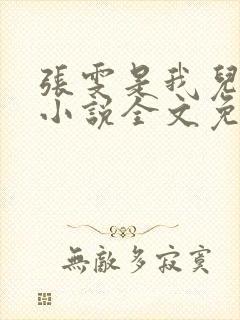 張雯是我兒
小說全文免
無敵多寂寞